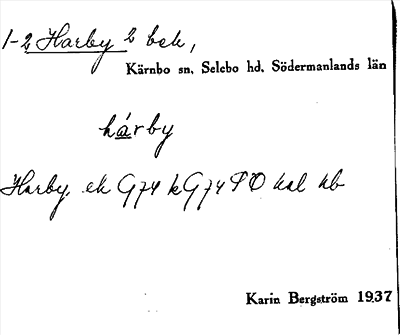 1-2 Harby 2 bek,
Kärnbo sn. Selebo hd. Södermanlands län
hárby
Harby. ek G74 kG74 PO kal hb
Karin Bergström 1937